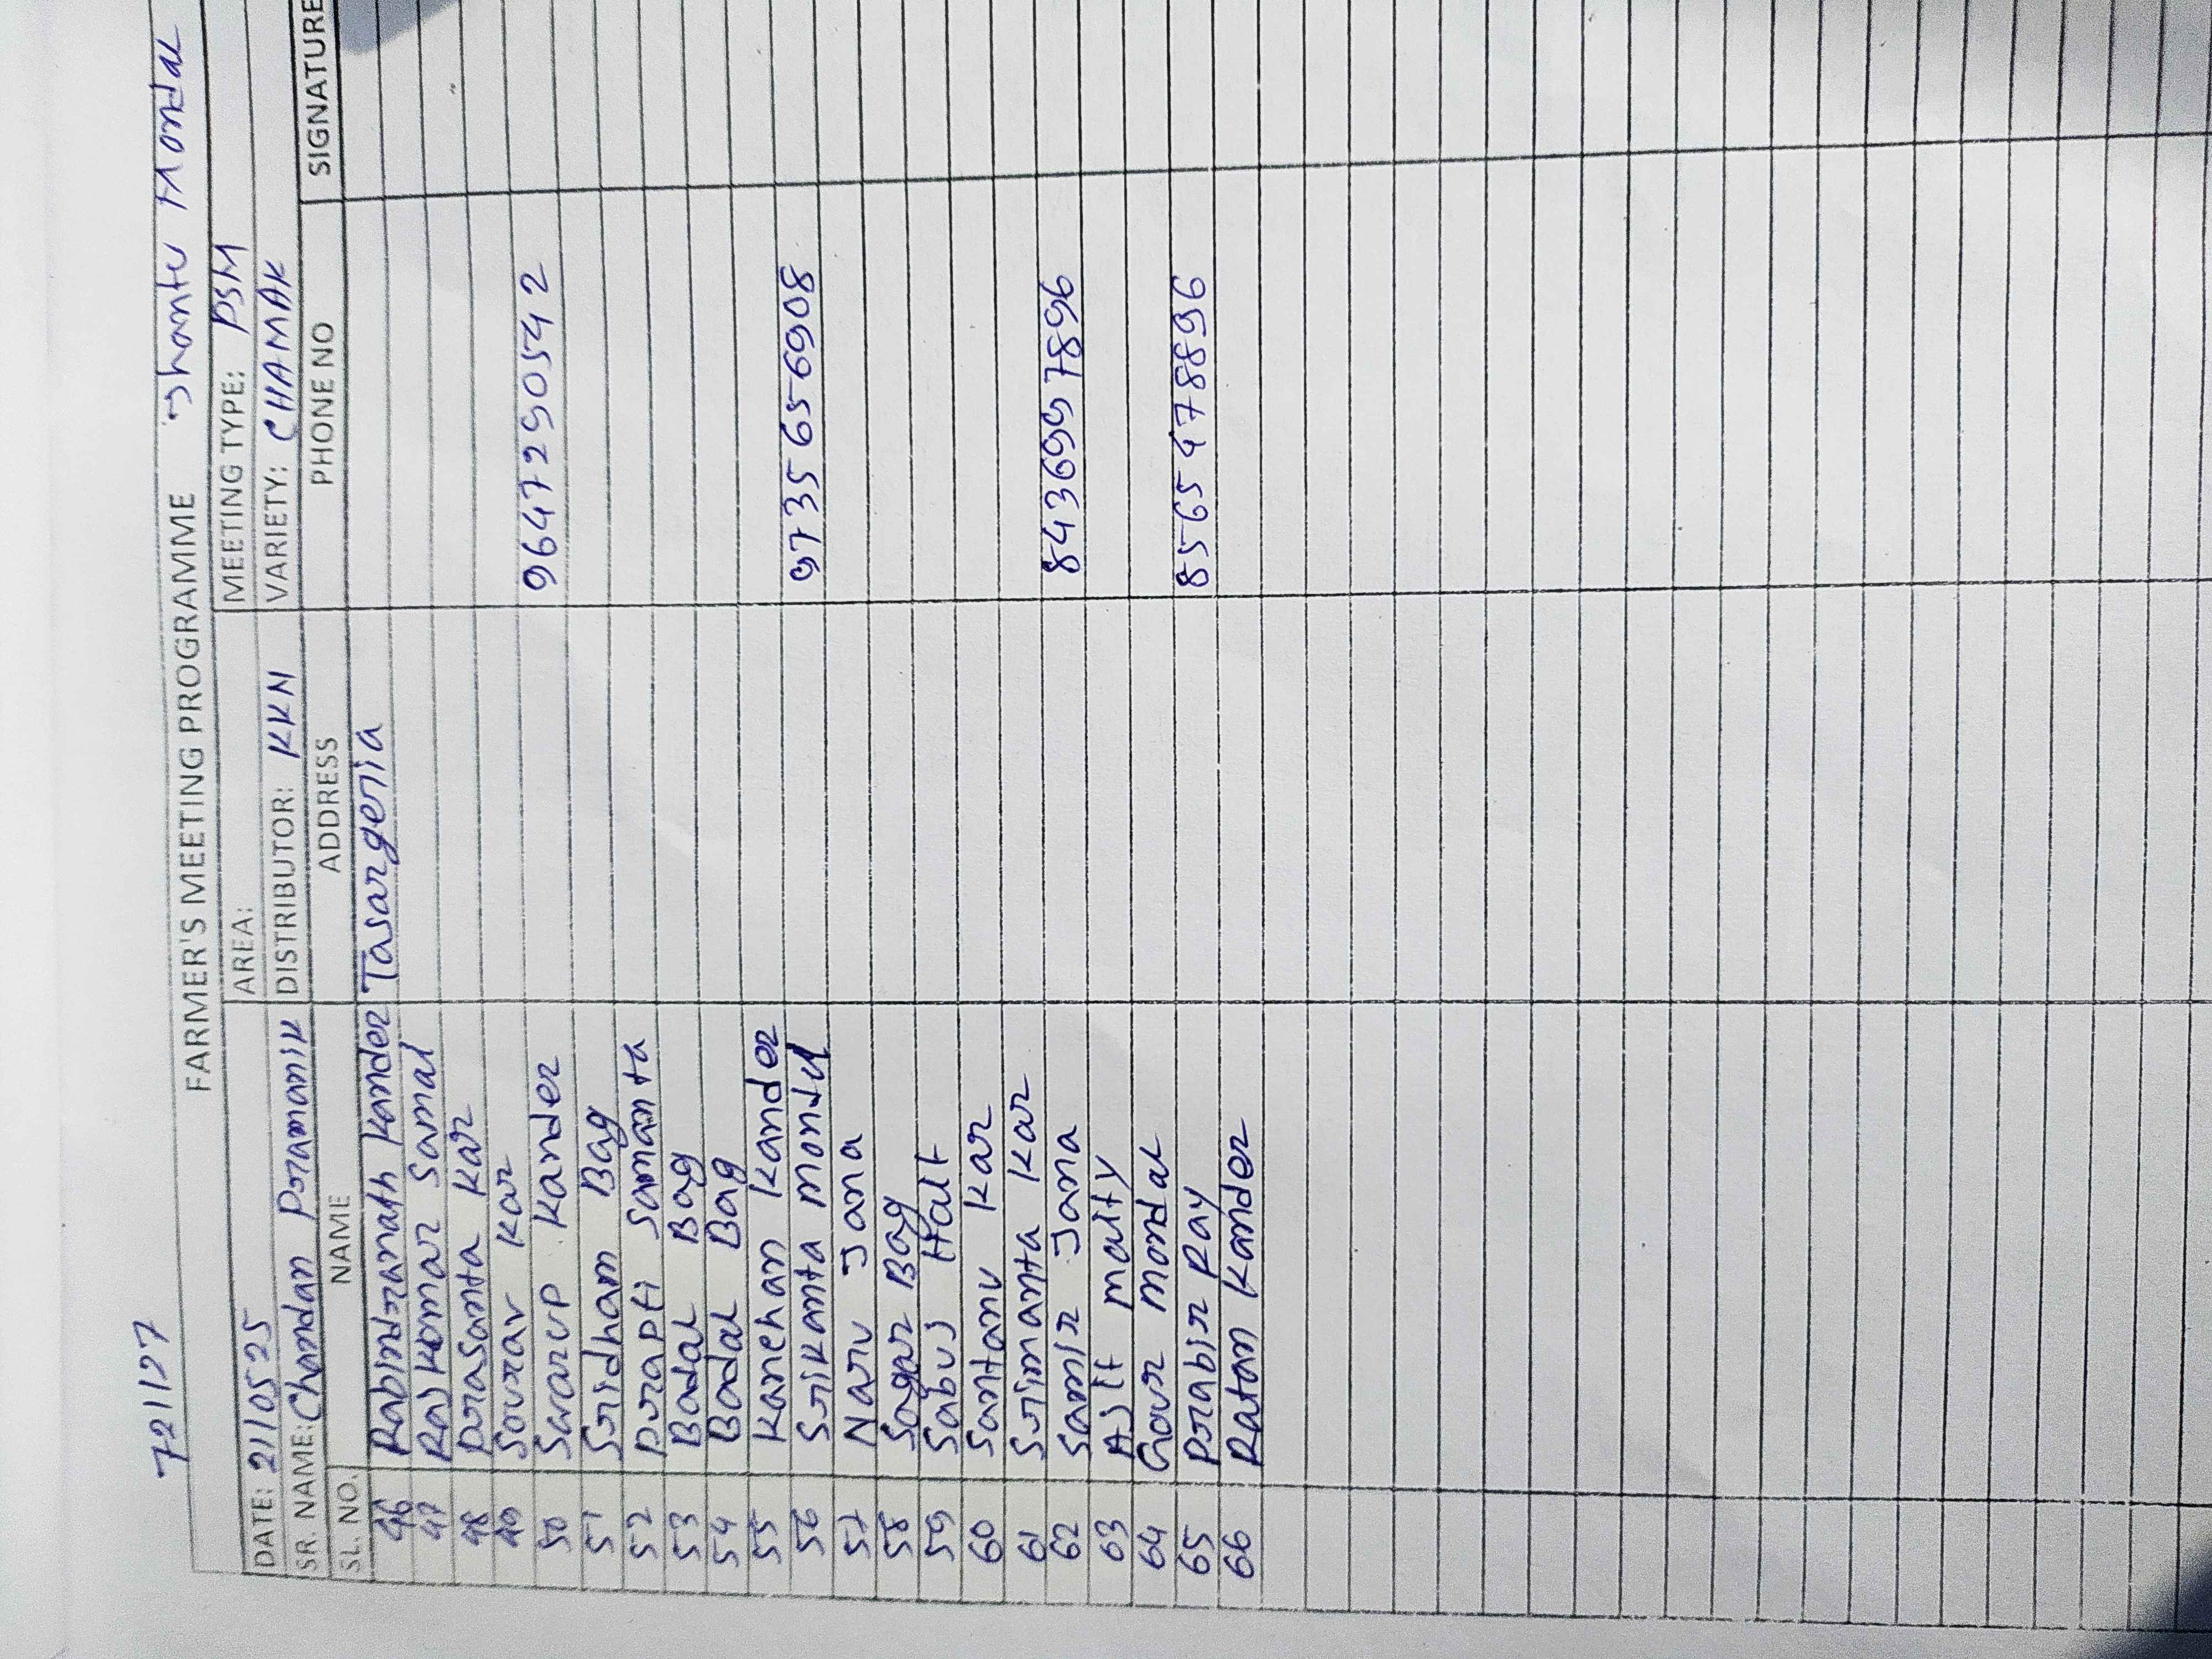 721127
FARMER'S MEETING PROGRAMME Shantu Mondal
DATE: 21/05 25 AREA: MEETING TYPE: PSM
SR. NAME: Chandan Pramanik DISTRIBUTOR: KKN VARIETY: CHAMAK
SL. NO. NAME ADDRESS PHONE NO SIGNATURE
46 Rabindranath Kander Tasargeria
47 Rajkomar Samal
48 Prasanta Kar
49 Sourav Kar
50 Swarup Kander 9647290542
51 Sridham Bag
52 Prapti Samanta
53 Badal Bag
54 Badal Bag
55 Kanchan Kander
56 Srikanta Mondal 9735656908
57 Naru Jana
58 Sagar Bag
59 Sabuj Hait
60 Santanu Kar
61 Srimanta Kar
62 Samir Jana 8436997896
63 Asit Maity
64 Gour Mondal
65 Prabir Ray 8565478896
66 Ratan Kander